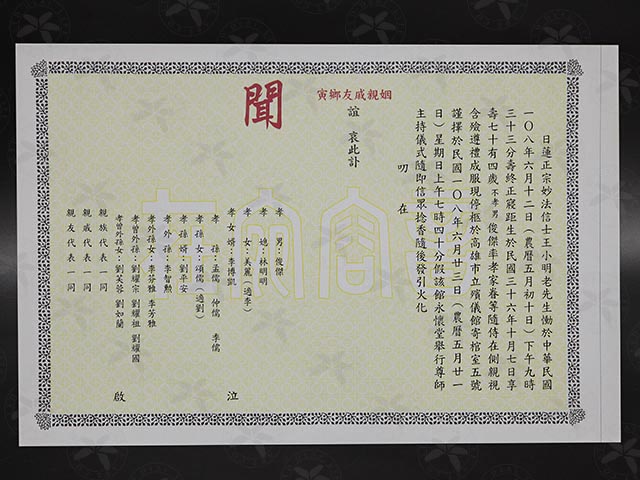 日蓮正宗妙法信士王小明老先生慟於中華民國
一〇八年六月十二日（農曆五月初十日）下午九時
三十三分壽終正寢距生於民國三十六年十月七日享
壽七十有四歲不孝男俊傑率孝家眷等隨侍在側親視
含殮遵禮成服現停柩於高雄市立殯儀館寄棺室五號
謹擇於民國一〇八年六月廿三日（農曆五月廿一
日）星期日上午七時四十分假該館永懷堂舉行尊師
主持儀式隨即信眾捻香隨後發引火化
叨在
姻親戚友鄉寅
誼 哀此訃
聞
孝男：俊傑
孝媳：林明明
孝女：美麗（適李）
孝女婿：李博凱
孝孫：孟儒 仲儒 季儒
孝孫女：頌儒（適劉）
孝孫婿：劉平安
孝外孫：李智勲
孝外孫女：李芬雅 李芳雅
孝曾外孫：劉耀宗 劉耀祖 劉耀國
孝曾外孫女：劉芙蓉 劉如蘭
親族代表一同
親戚代表一同
親友代表一同
泣
啟